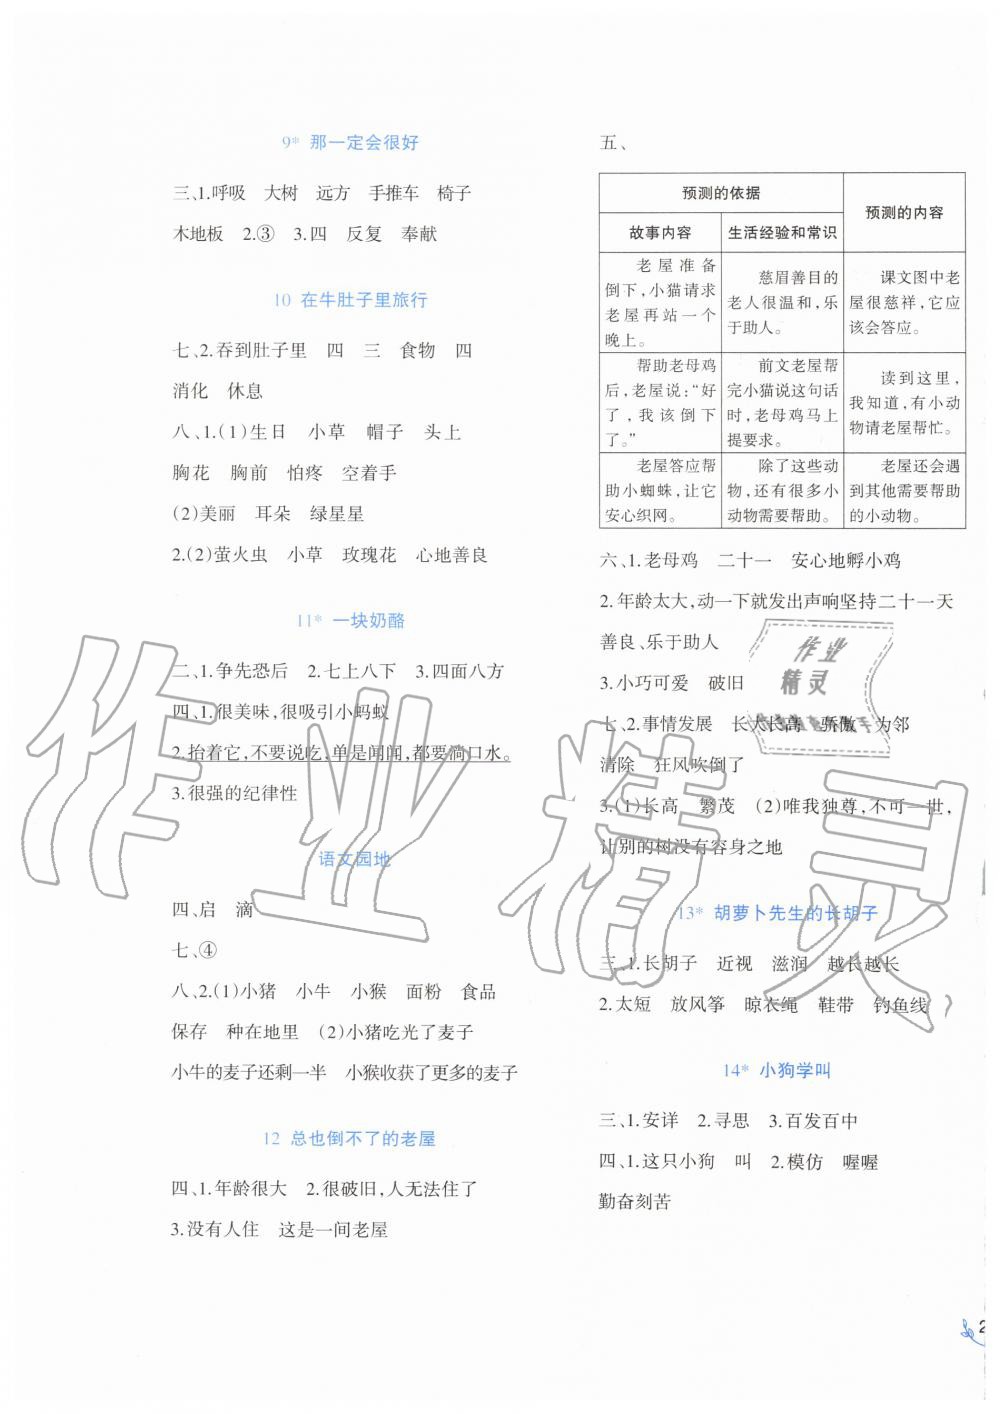 9* 那一定会很好
三、1.呼吸 大树 远方 手推车 椅子
木地板 2.③ 3.四 反复 奉献
10 在牛肚子里旅行
七、2.吞到肚子里 四 三 食物 四
消化 休息
八、1.(1)生日 小草 帽子 头上
胸花 胸前 怕疼 空着手
(2)美丽 耳朵 绿星星
2.(2)萤火虫 小草 玫瑰花 心地善良
11* 一块奶酪
二、1.争先恐后 2.七上八下 3.四面八方
四、1.很美味,很吸引小蚂蚁
2.抬着它,不要说吃,单是闻闻,都要淌口水。
3.很强的纪律性
语文园地
四、启 滴
七、④
八、2.(1)小猪 小牛 小猴 面粉 食品
保存 种在地里 (2)小猪吃光了麦子
小牛的麦子还剩一半 小猴收获了更多的麦子
12 总也倒不了的老屋
四、1.年龄很大 2.很破旧,人无法住了
3.没有人住 这是一间老屋
五、
预测的依据
预测的内容
故事内容 生活经验和常识
老屋准备
倒下,小猫请求
老屋再站一个
晚上。
慈眉善目的
老人很温和,乐
于助人。
课文图中老
屋很慈祥,它应
该会答应。
帮助老母鸡
后,老屋说:“好
了,我该倒下
了。”
前文老屋帮
完小猫说这句话
时,老母鸡马上
提要求。
读到这里,
我知道,有小动
物请老屋帮忙。
老屋答应帮
助小蜘蛛,让它
安心织网。
除了这些动
物,还有很多小
动物需要帮助。
老屋还会遇
到其他需要帮助
的小动物。
六、1.老母鸡 二十一 安心地孵小鸡
2.年龄太大,动一下就发出声响坚持二十一天
善良、乐于助人
3.小巧可爱 破旧
七、2.事情发展 长大长高 骄傲 为邻
清除 狂风吹倒了
3.(1)长高 繁茂 (2)唯我独尊,不可一世,
让别的树没有容身之地
13* 胡萝卜先生的长胡子
三、1.长胡子 近视 滋润 越长越长
2.太短 放风筝 晾衣绳 鞋带 钓鱼线
14* 小狗学叫
三、1.安详 2.寻思 3.百发百中
四、1.这只小狗 叫 2.模仿 喔喔
勤奋刻苦
作业精灵
作业
精灵
2